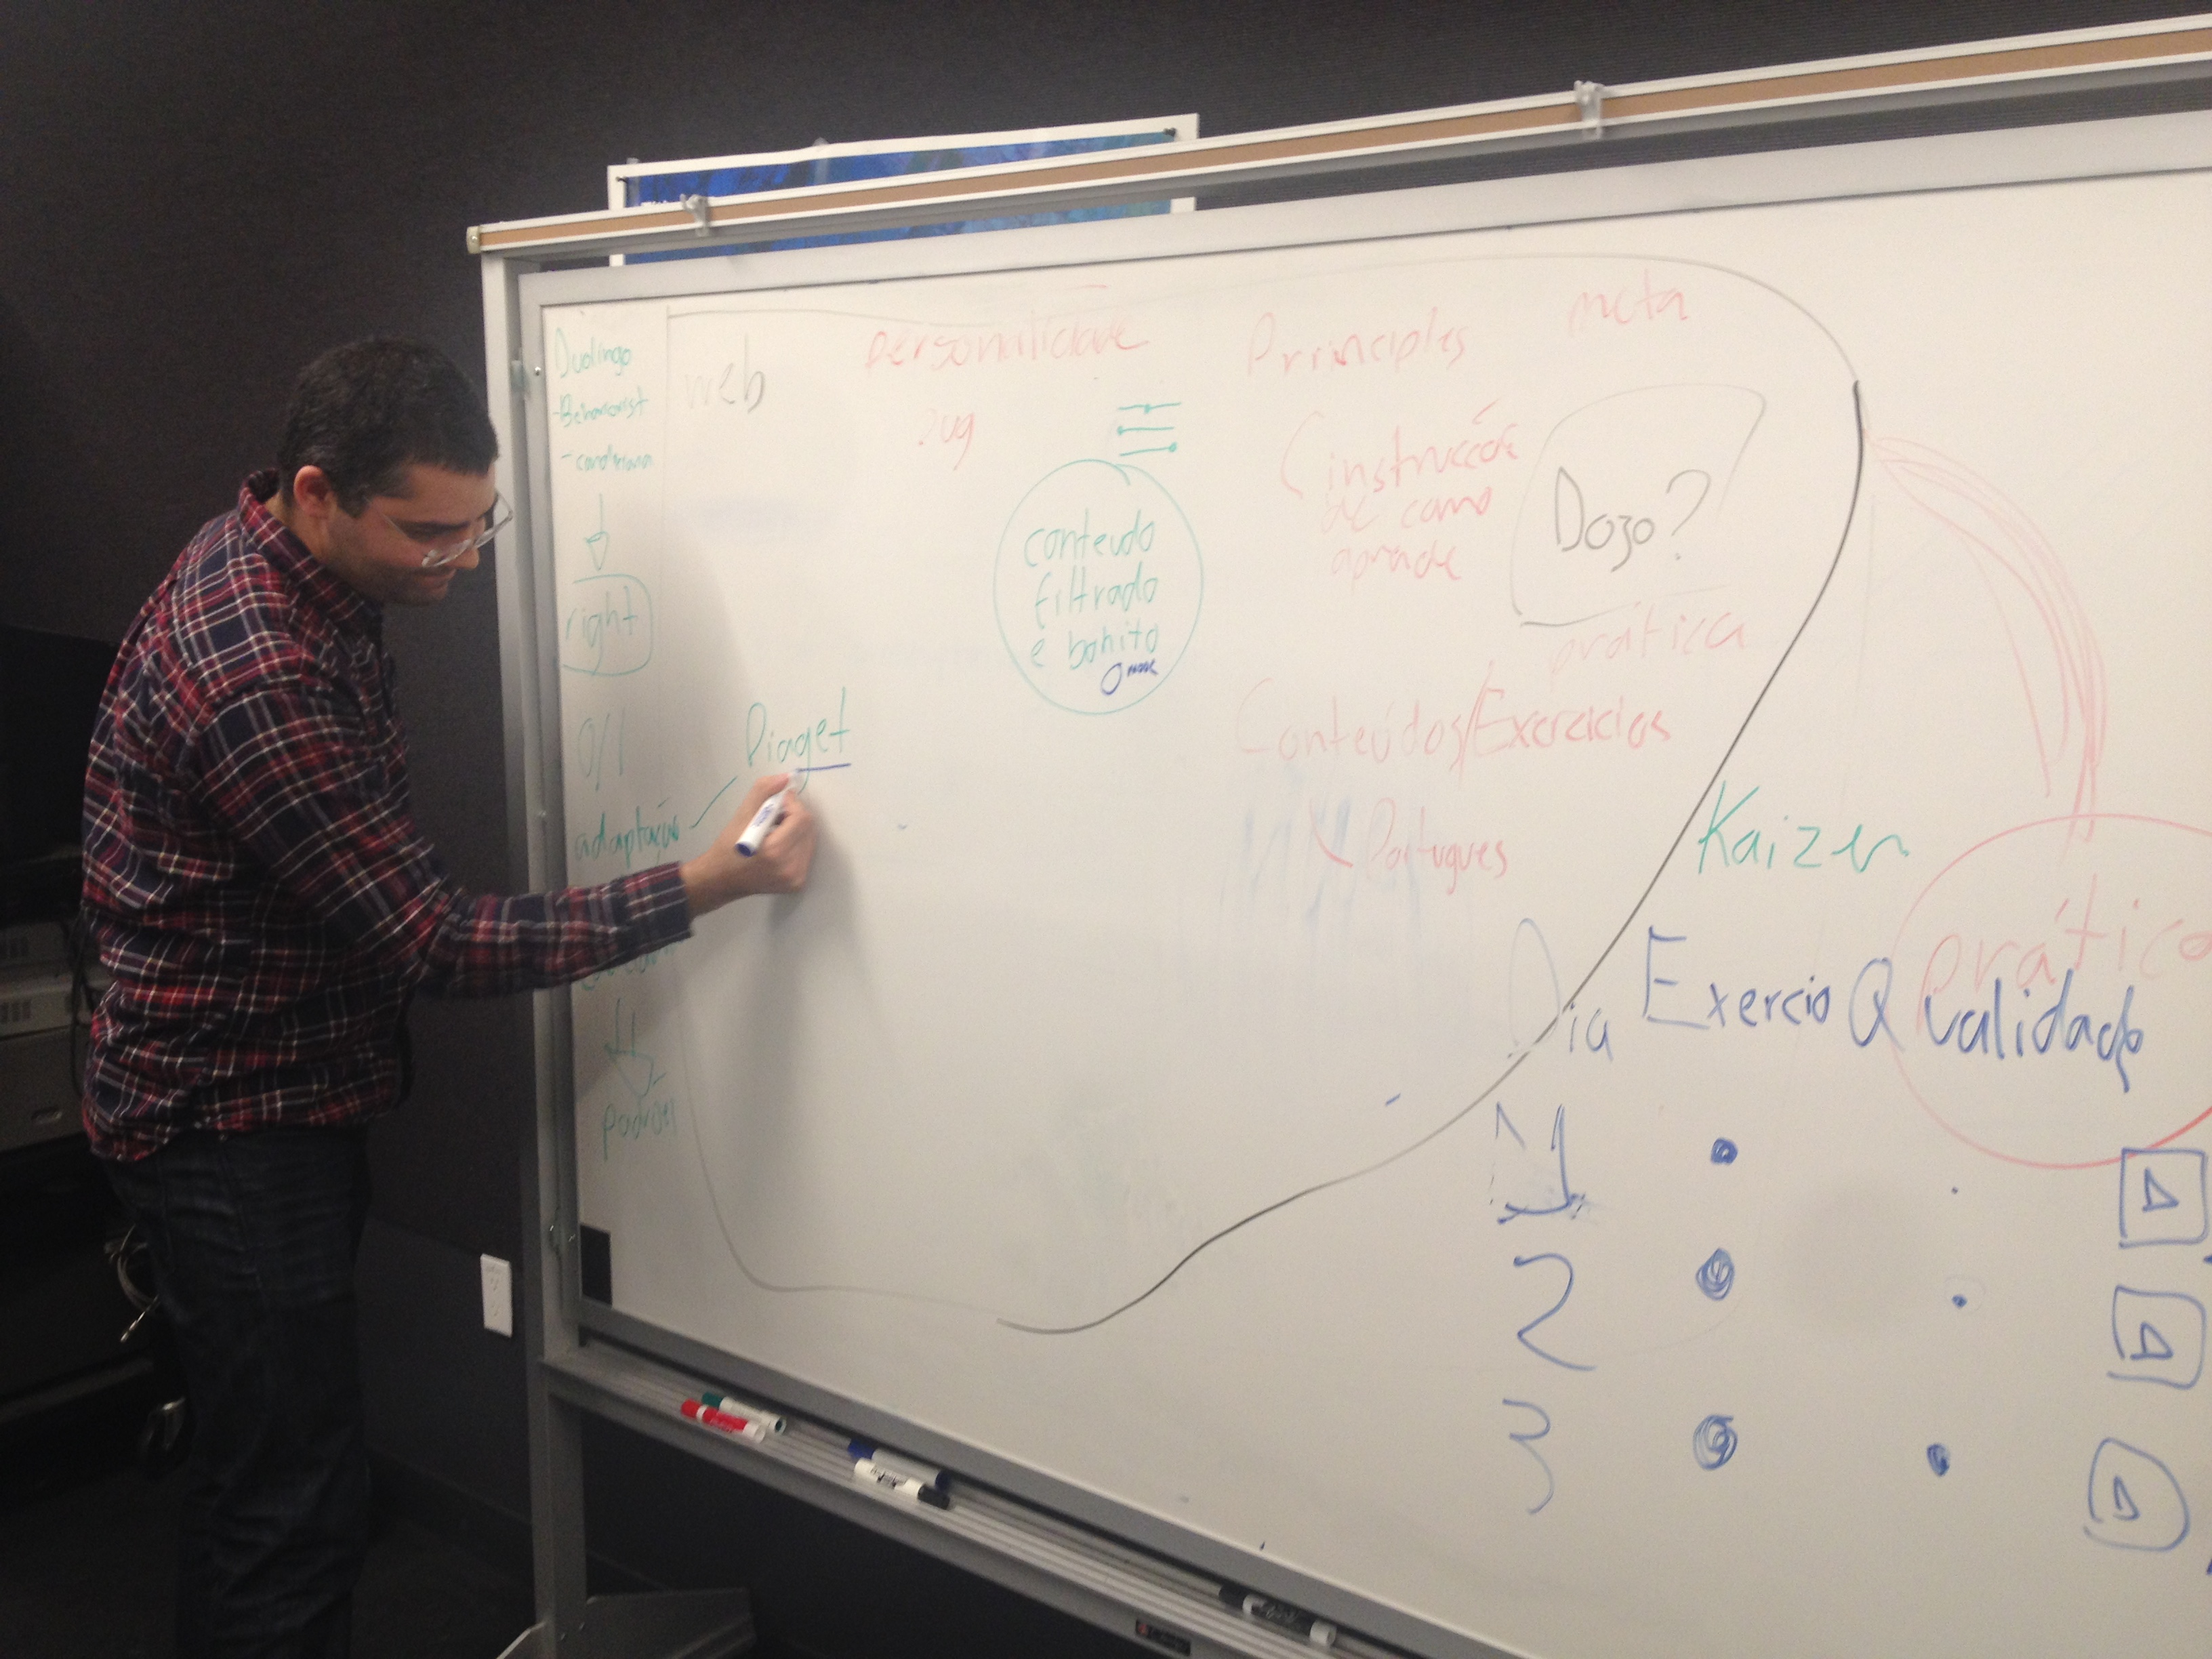 Duolingo
-Behaviorist
right
0/1
adaptação
padrões
web
Piaget
personalidade
conteudo
filtrado
e bonito
Principles
meta
instrucción
de como
aprende
Dojo?
prática
Conteúdos/Exercicios
Portugues
Kaizen
prática
Dia Exercio Qualidade
1
2
3